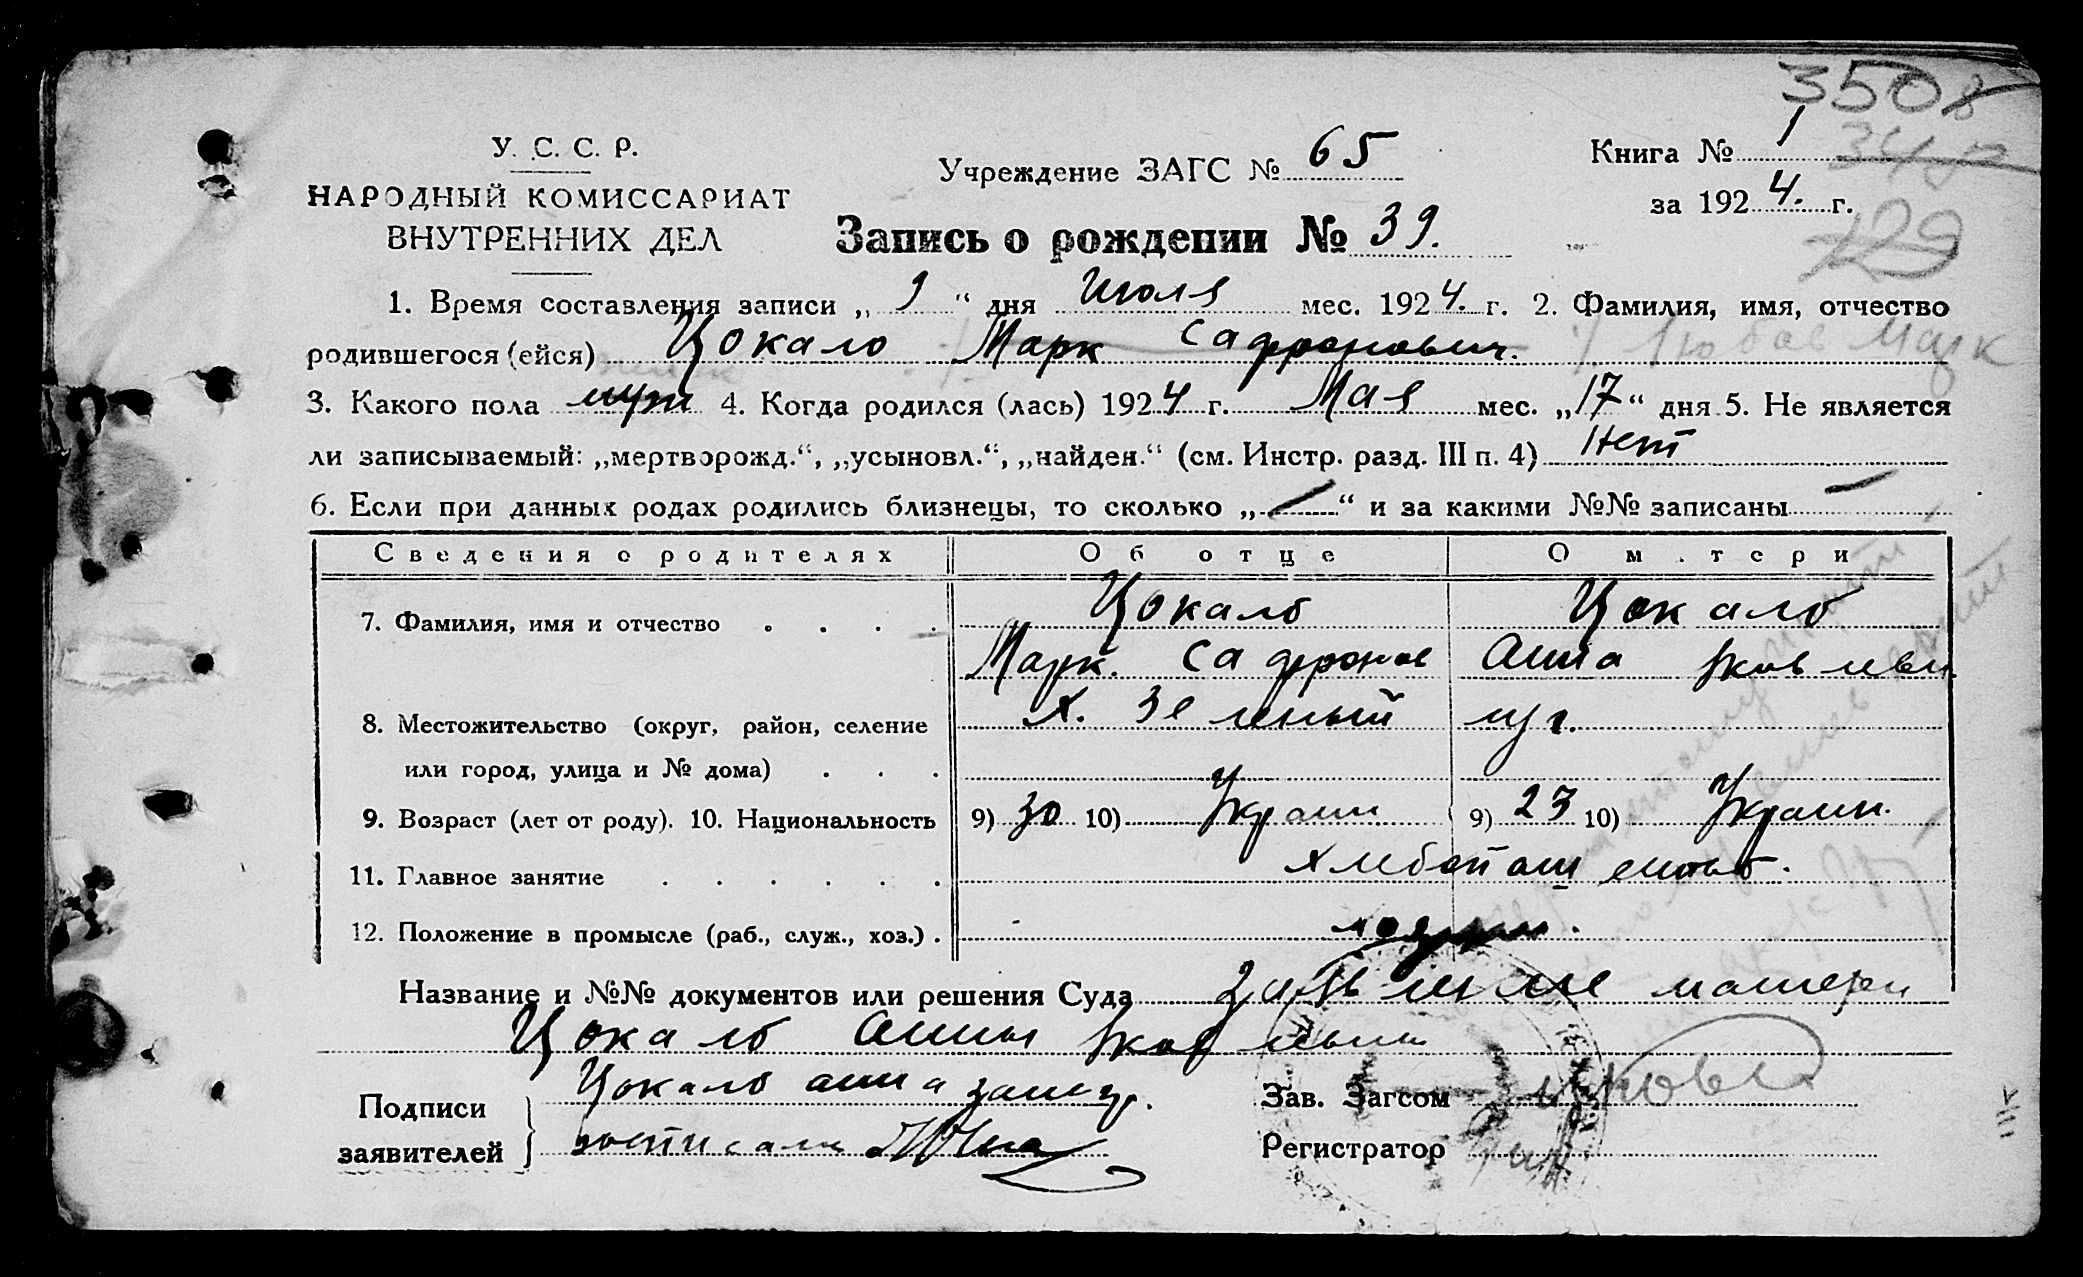 3508
У. С. С. Р.
НАРОДНЫЙ КОМИССАРИАТ
ВНУТРЕННИХ ДЕЛ
Учреждение ЗАГС № 65
Книга № 1
за 1924. г.
129
Запись о рождении № 39.
1. Время составления записи „ 9 “ дня Июля мес. 1924. г. 2. Фамилия, имя, отчество
родившегося (ейся) Цокало Марк Сафронович. Любов Марк
3. Какого пола муж 4. Когда родился (лась) 1924 г. Мая мес. „17“ дня 5. Не является
ли записываемый: „мертворожд.“, „усыновл.“, „найден.“ (см. Инстр. разд. III п. 4) Нет
6. Если при данных родах родились близнецы, то сколько „ — “ и за какими №№ записаны —
Сведения о родителях Об отце О м.тери
7. Фамилия, имя и отчество Цокало Цокало
Марк. Сафронов Анна Яковлевн.
8. Местожительство (округ, район, селение х. Зеленый луг.
или город, улица и № дома)
9. Возраст (лет от роду). 10. Национальность 9) 30 10) Украин 9) 23 10) Украин.
11. Главное занятие хлебопашество.
12. Положение в промысле (раб., служ., хоз.)
Название и №№ документов или решения Суда матери
Цокало Анны Яковлевны
Подписи заявителей Цокало Анна
Зав. Загсом
Регистратор